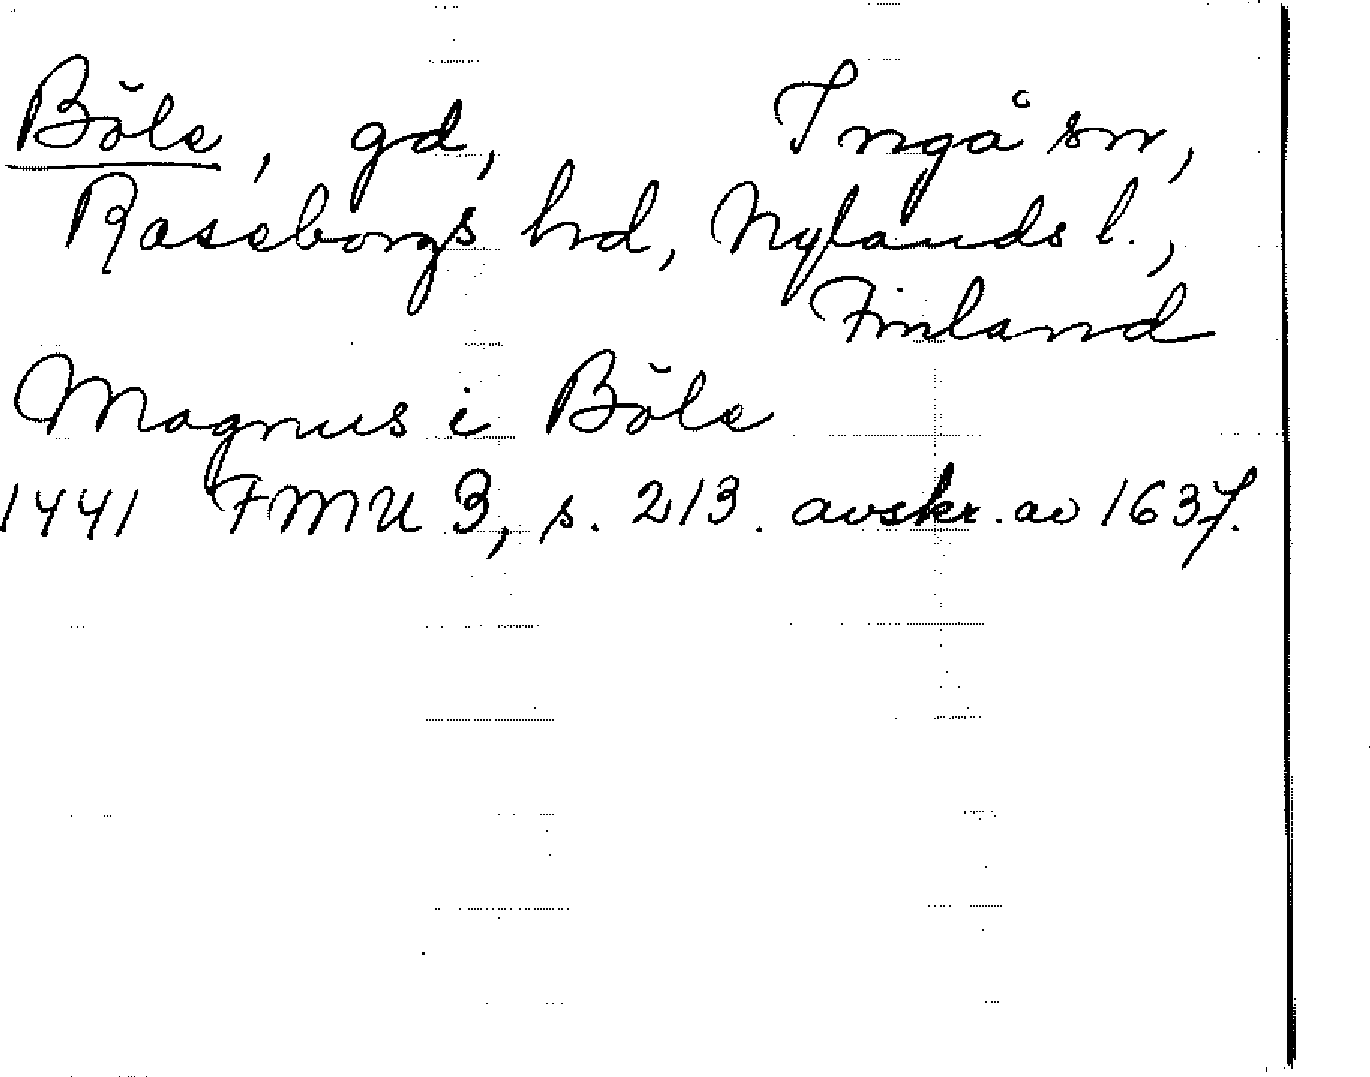 Böle, gd, Ingå sn,
Raseborgs hd, Nylands l.,
Finland
Magnus i Böle
1441 FMU 3, s. 213. avskr. av 1637.